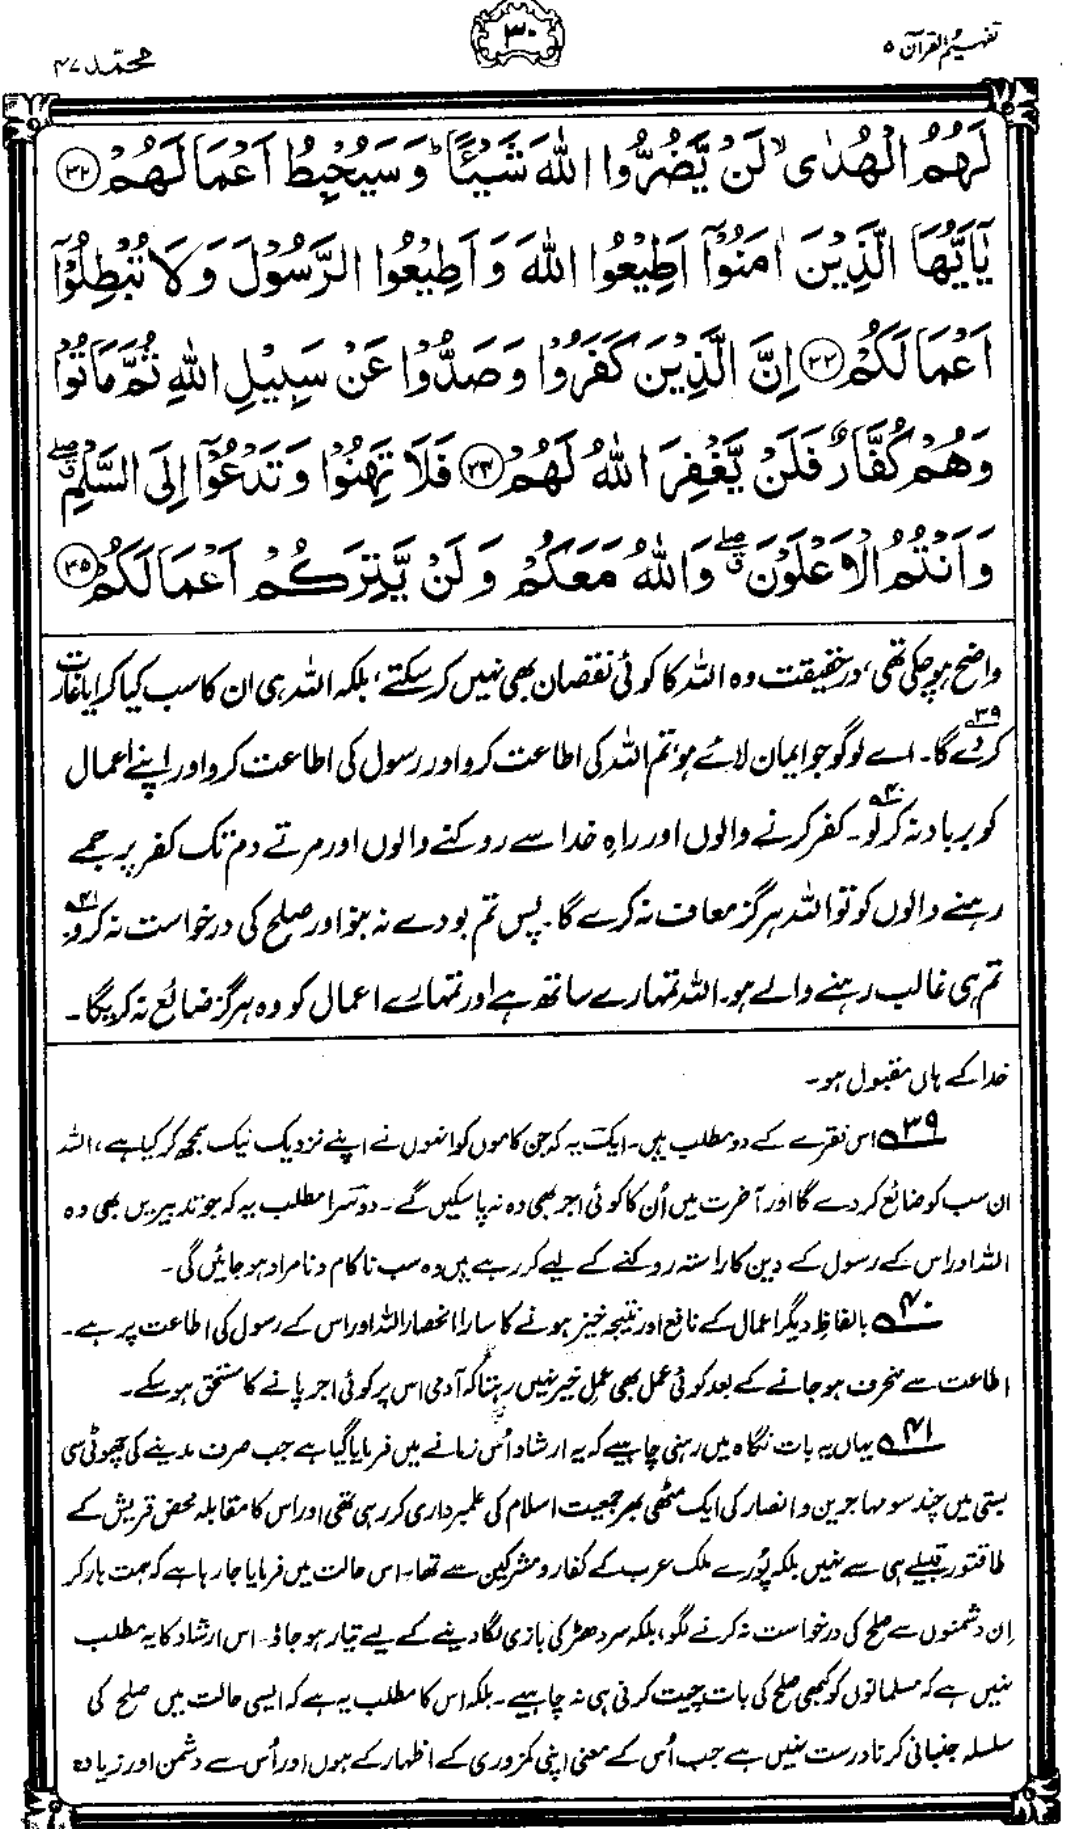 تفہیم القرآن ۵
۳۰
محمّد ۴۷
لَهُمُ الْهُدٰى ۙ لَنْ يَّضُرُّوا اللّٰهَ شَيْـًٔا ؕ وَ سَيُحْبِطُ اَعْمَالَهُمْ ۳۲
يٰۤاَيُّهَا الَّذِيْنَ اٰمَنُوْۤا اَطِيْعُوا اللّٰهَ وَ اَطِيْعُوا الرَّسُوْلَ وَ لَا تُبْطِلُوْۤا
اَعْمَالَكُمْ ۳۳ اِنَّ الَّذِيْنَ كَفَرُوْا وَ صَدُّوْا عَنْ سَبِيْلِ اللّٰهِ ثُمَّ مَاتُوْا
وَ هُمْ كُفَّارٌ فَلَنْ يَّغْفِرَ اللّٰهُ لَهُمْ ۳۴ فَلَا تَهِنُوْا وَ تَدْعُوْۤا اِلَى السَّلْمِ ۖۗ
وَ اَنْتُمُ الْاَعْلَوْنَ ۖۗ وَ اللّٰهُ مَعَكُمْ وَ لَنْ يَّتِرَكُمْ اَعْمَالَكُمْ ۳۵
واضح ہو چکی تھی، درحقیقت وہ اللہ کا کوئی نقصان بھی نہیں کر سکتے، بلکہ اللہ ہی ان کا سب کیا کرایا غارت
کر دے گا۔۳۹ اے لوگو جو ایمان لائے ہو، تم اللہ کی اطاعت کرو اور رسول کی اطاعت کرو اور اپنے اعمال
کو برباد نہ کر لو۔۴۰ کفر کرنے والوں اور راہِ خدا سے روکنے والوں اور مرتے دم تک کفر پر جمے
رہنے والوں کو تو اللہ ہرگز معاف نہ کرے گا۔ پس تم بودے نہ بنو اور صلح کی درخواست نہ کرو۔۴۱
تم ہی غالب رہنے والے ہو۔ اللہ تمہارے ساتھ ہے اور تمہارے اعمال کو وہ ہرگز ضائع نہ کریگا۔
خدا کے ہاں مقبول ہو۔
۳۹؎ اس فقرے کے دو مطلب ہیں۔ ایک یہ کہ جن کاموں کو انہوں نے اپنے نزدیک نیک سمجھ کر کیا ہے، اللہ
ان سب کو ضائع کر دے گا اور آخرت میں اُن کا کوئی اجر بھی وہ نہ پا سکیں گے۔ دوسرا مطلب یہ کہ جو تدبیریں بھی وہ
اللہ اور اس کے رسول کے دین کا راستہ روکنے کے لیے کر رہے ہیں وہ سب ناکام و نامراد ہو جائیں گی۔
۴۰؎ بالفاظِ دیگر اعمال کے نافع اور نتیجہ خیز ہونے کا سارا انحصار اللہ اور اس کے رسول کی اطاعت پر ہے۔
اطاعت سے منحرف ہو جانے کے بعد کوئی عمل بھی عملِ خیر نہیں رہتا کہ آدمی اس پر کوئی اجر پانے کا مستحق ہو سکے۔
۴۱؎ یہاں یہ بات نگاہ میں رہنی چاہیے کہ یہ ارشاد اُس زمانے میں فرمایا گیا ہے جب صرف مدینے کی چھوٹی سی
بستی میں چند سو مہاجرین و انصار کی ایک مٹھی بھر جمعیت اسلام کی علمبرداری کر رہی تھی اور اس کا مقابلہ محض قریش کے
طاقتور قبیلے ہی سے نہیں بلکہ پُورے ملک عرب کے کفار و مشرکین سے تھا۔ اس حالت میں فرمایا جا رہا ہے کہ ہمت ہار کر
اِن دشمنوں سے صلح کی درخواست نہ کرنے لگو، بلکہ سر دھڑ کی بازی لگا دینے کے لیے تیار ہو جاؤ۔ اس ارشاد کا یہ مطلب
نہیں ہے کہ مسلمانوں کو کبھی صلح کی بات چیت کرنی ہی نہ چاہیے۔ بلکہ اس کا مطلب یہ ہے کہ ایسی حالت میں صلح کی
سلسلہ جنبانی کرنا درست نہیں ہے جب اُس کے معنی اپنی کمزوری کے اظہار کے ہوں اور اُس سے دشمن اور زیادہ